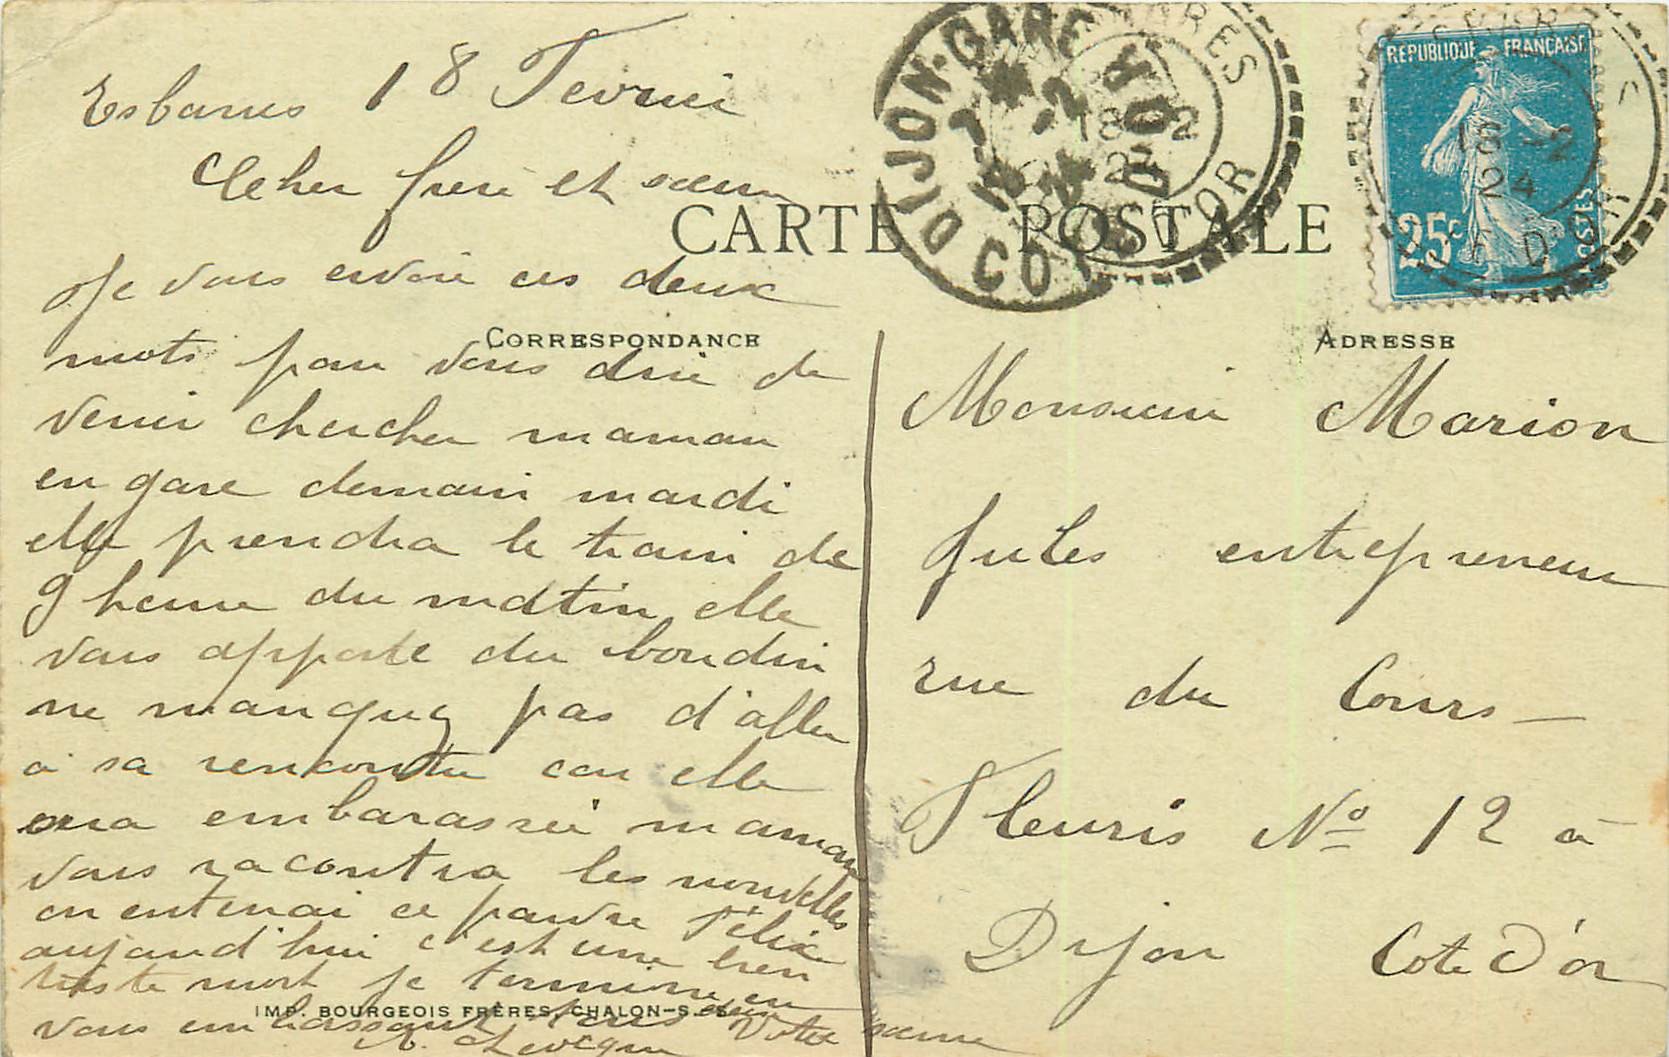 Esbarres 18 Fevrier
Cher frere et sœur
Je vous envoie ces deux
mots pour vous dire de
venir chercher maman
en gare demain mardi
elle prendra le train de
9 heure du matin elle
vous apporte du boudin
ne manquez pas d'aller
a sa rencontre car elle
sera embarassée maman
vous racontra les nouvelles
on enterrai ce pauvre Félix
aujourd'hui c'est une bien
triste mort je termine en
vous embrassant tous deux Votre sœur
CARTE POSTALE
CORRESPONDANCE
ADRESSE
DIJON-GARE
COTE D'OR
18 -2
24
REPUBLIQUE FRANÇAISE
25c
POSTES
18 -2
24
Monsieur Marion
Jules entrepreneur
rue du Cours
Fleuris No 12 a
Dijon Cote D'or
IMP. BOURGEOIS FRÈRES, CHALON-S.-S.